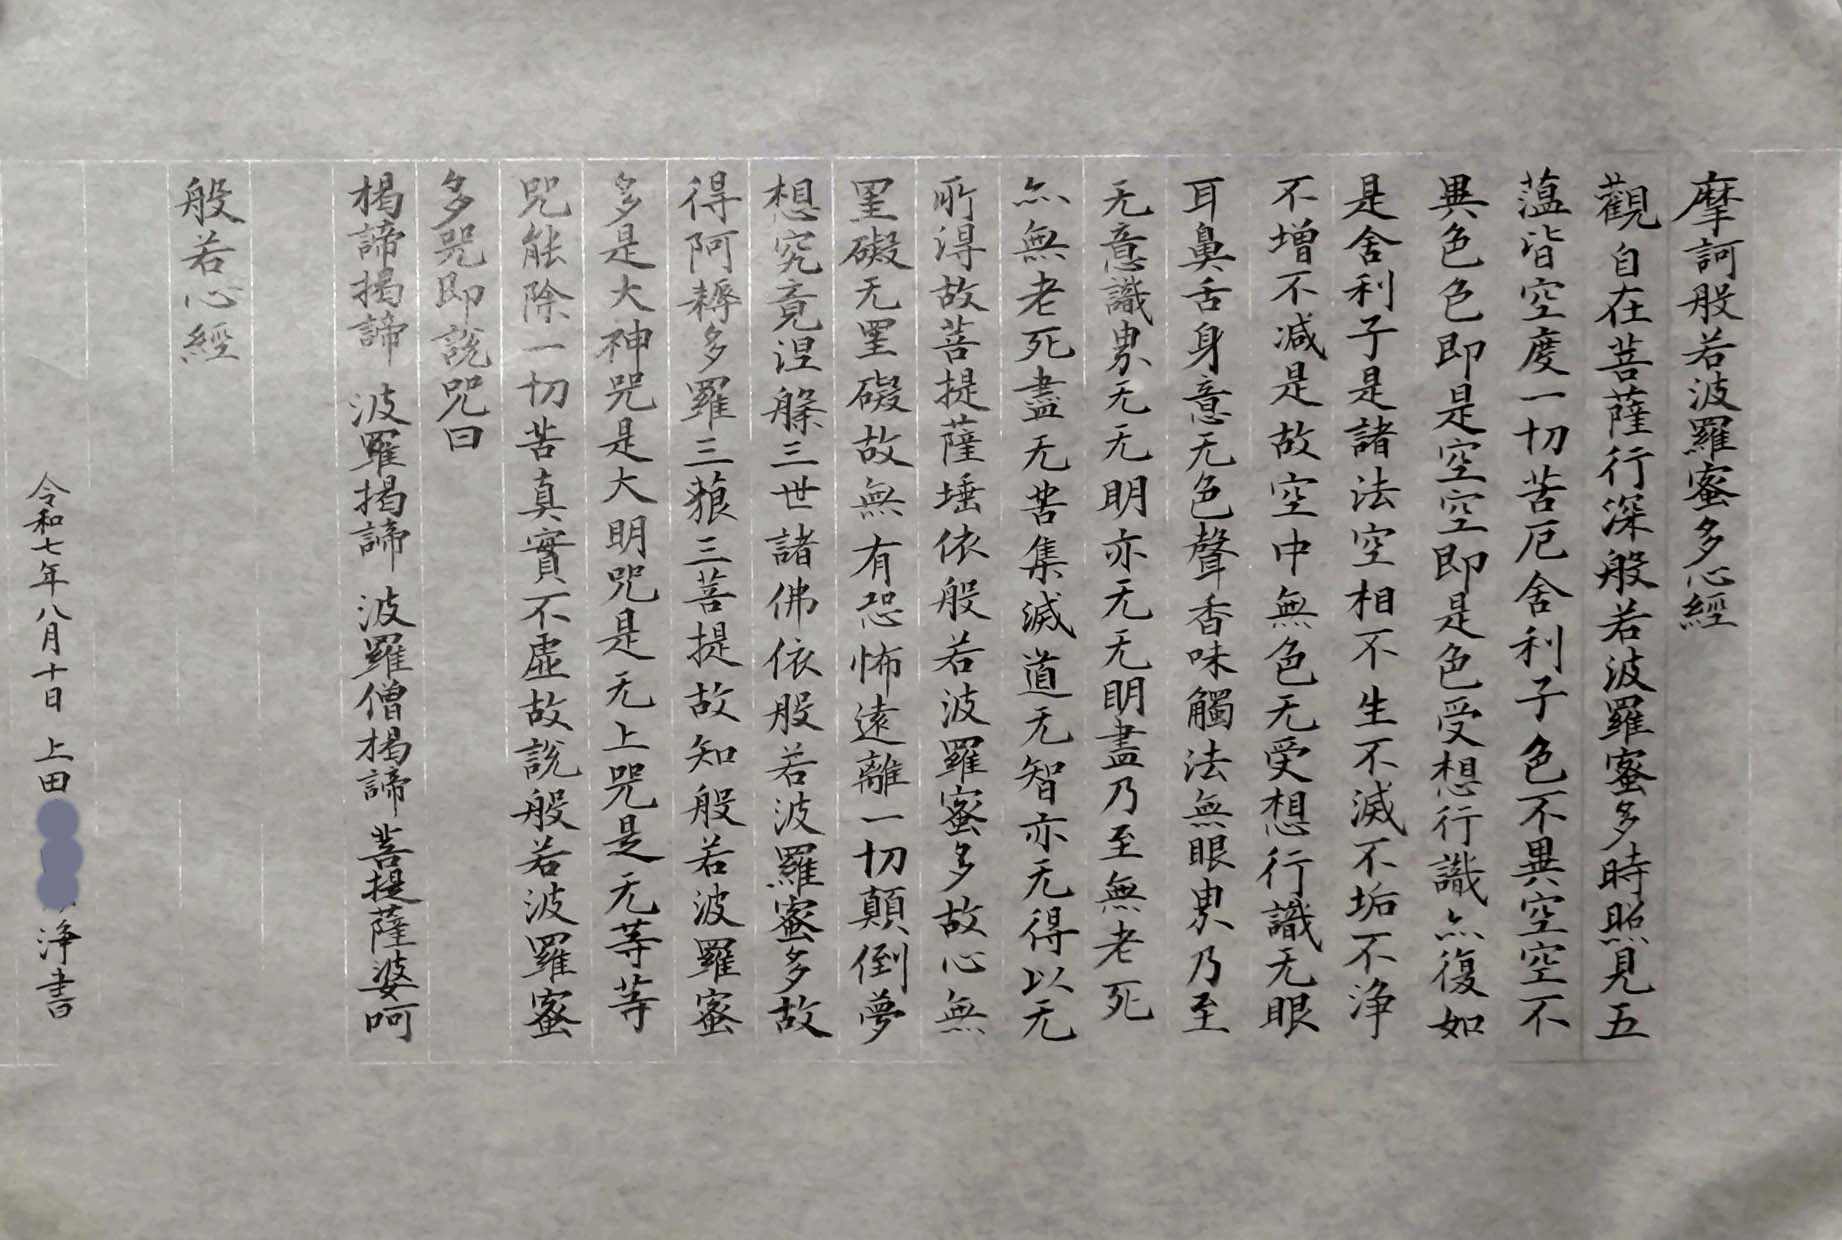 摩訶般若波羅蜜多心經
觀自在菩薩行深般若波羅蜜多時照見五
薀皆空度一切苦厄舍利子色不異空空不
異色色即是空空即是色受想行識亦復如
是舍利子是諸法空相不生不滅不垢不浄
不增不減是故空中無色无受想行識无眼
耳鼻舌身意无色聲香味觸法無眼界乃至
无意識界无无明亦无无明盡乃至無老死
亦無老死盡无苦集滅道无智亦无得以无
所淂故菩提薩埵依般若波羅蜜多故心無
罣礙无罣礙故無有恐怖遠離一切顛倒夢
想究竟涅槃三世諸佛依般若波羅蜜多故
得阿耨多羅三藐三菩提故知般若波羅蜜
多是大神咒是大明咒是无上咒是无等等
咒能除一切苦真實不虛故說般若波羅蜜
多咒即說咒曰
揭諦揭諦 波羅揭諦 波羅僧揭諦 菩提薩婆呵
般若心經
令和七年八月十日 上田 浄書